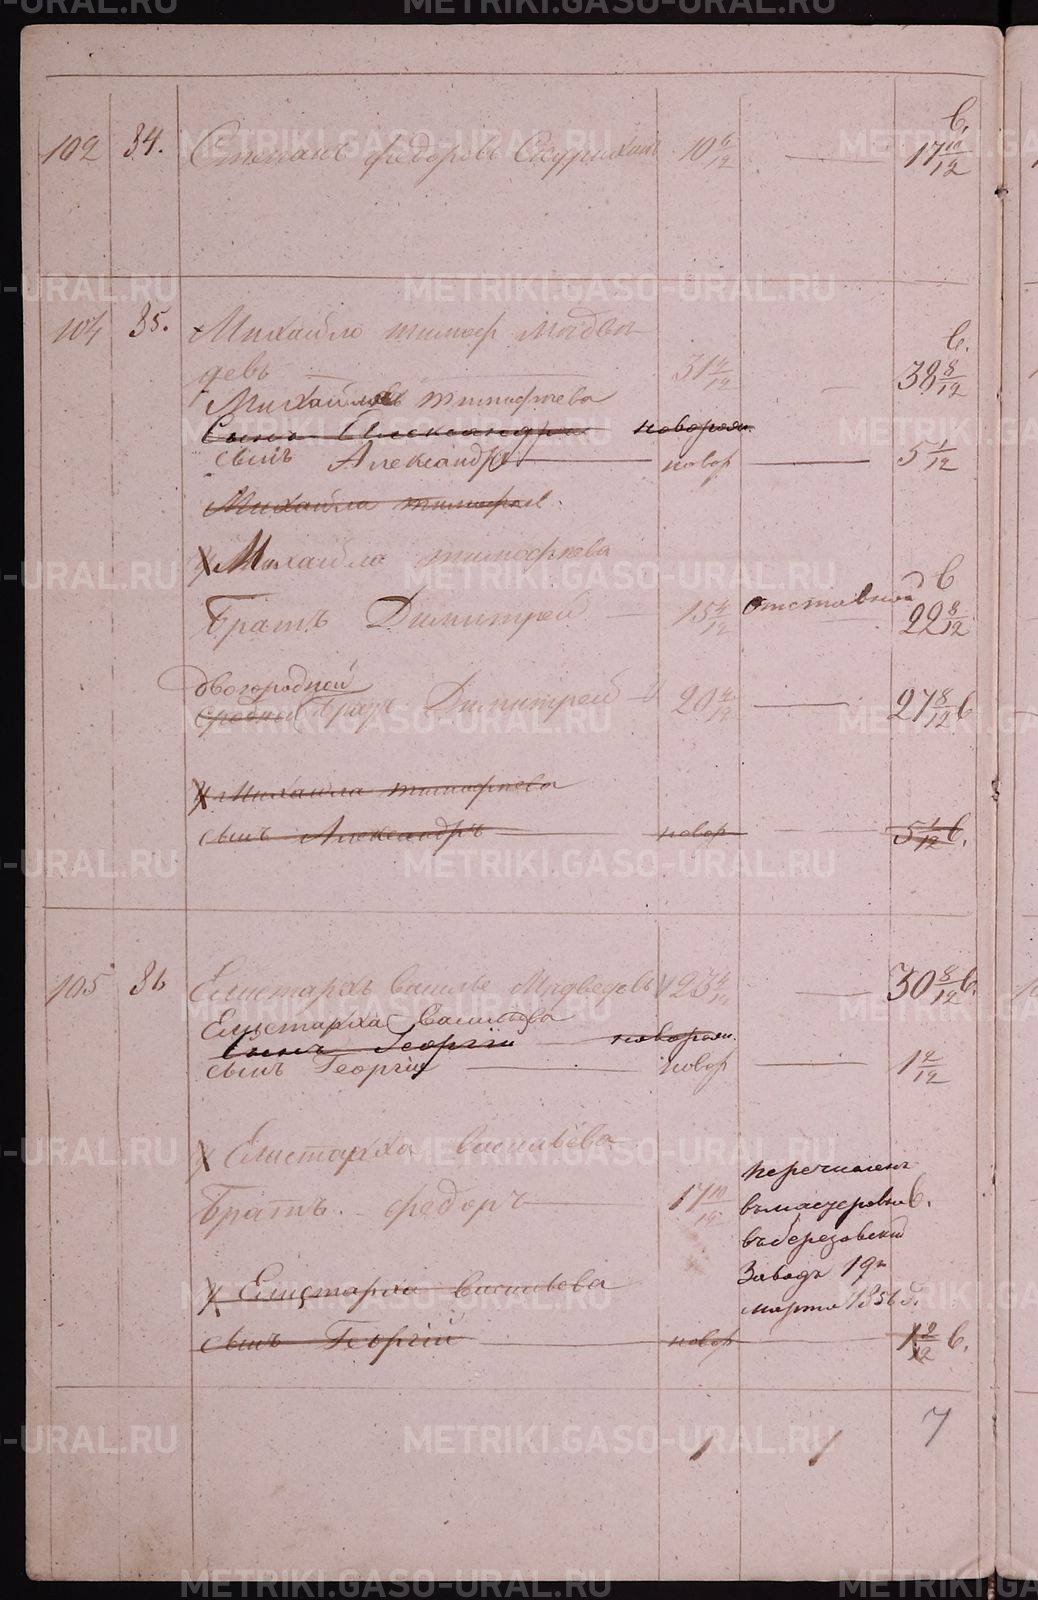 102 34. Степанъ Федоровъ Скурихинъ 10 6/12 — в. 17 10/12
104 35. Михайло тимоф Медве
девъ — 31 4/12 — в. 38 8/12
Михайловъ Тимофеева
Сынъ Александръ новорож.
сынъ Александръ — новор — 5 1/12
Михайла тимофеев.
Михаила тимофеева
Братъ Димитрей — 15 4/12 Отставной в 22 8/12
двоюродной
сродной братъ Димитрей 20 4/12 — 27 8/12 в
Михаила тимофеева
сынъ Александръ — новор — 5 1/12 в.
105 36 Елистархъ василье Медведевъ 23 4/12 — 30 8/12 в.
Елистарха Васильева
Сынъ Георгій — новорож.
сынъ Георгій — новор — 1 2/12
Елистарха васильева
Братъ федоръ — 17 10/12
перечисленъ
въ мастеровые в.
въ березовский
Заводъ 19го
марта 1856 г.
Елистарха васильева
сынъ Георгій — новор — 1 2/12 в.
1 1 7
METRIKI.GASO-URAL.RU